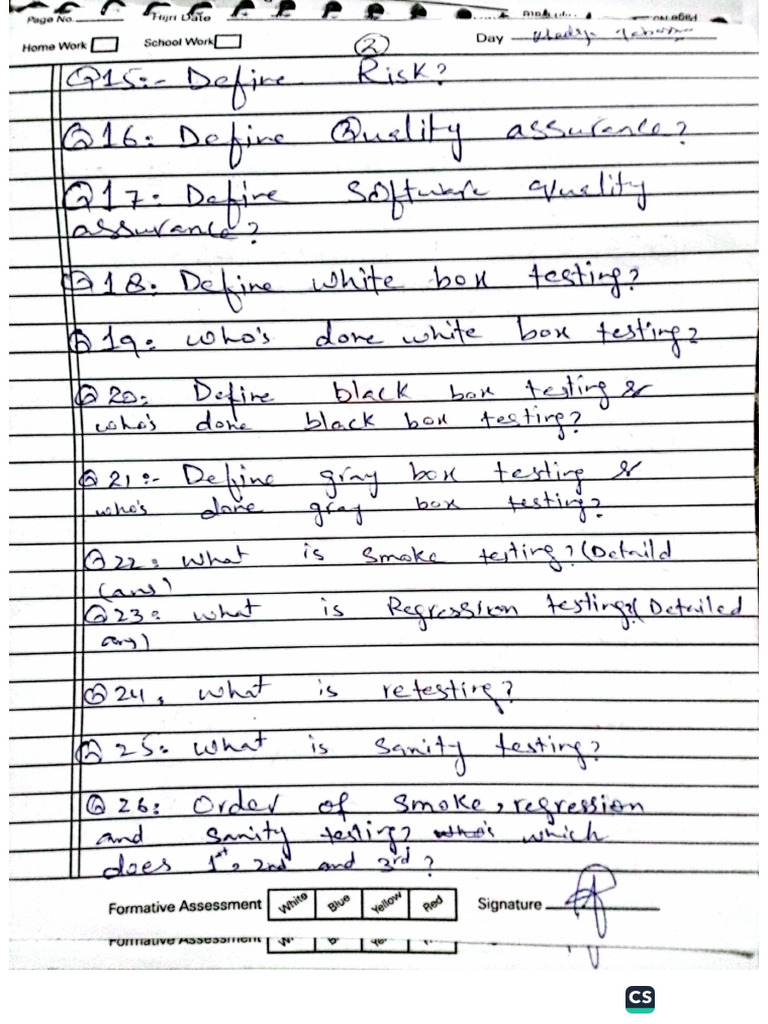 Page No. Hijri Date
Home Work School Work 2 Day
Q15:- Define Risk?
Q16: Define Quality assurance?
Q17: Define Software quality
assurance?
Q18: Define white box testing?
Q19: who's done white box testing?
Q20: Define black box testing &
who's done black box testing?
Q21:- Define gray box testing &
who's done gray box testing?
Q22: What is Smoke testing? (Detaild
(ans)
Q23: what is Regression testing? (Detailed
ans)
Q24: What is retesting?
Q25: What is Sanity testing?
Q26: Order of Smoke, regression
and Sanity testing? who's which
does 1st, 2nd and 3rd?
Formative Assessment White Blue Yellow Red Signature
Formative Assessment
CS